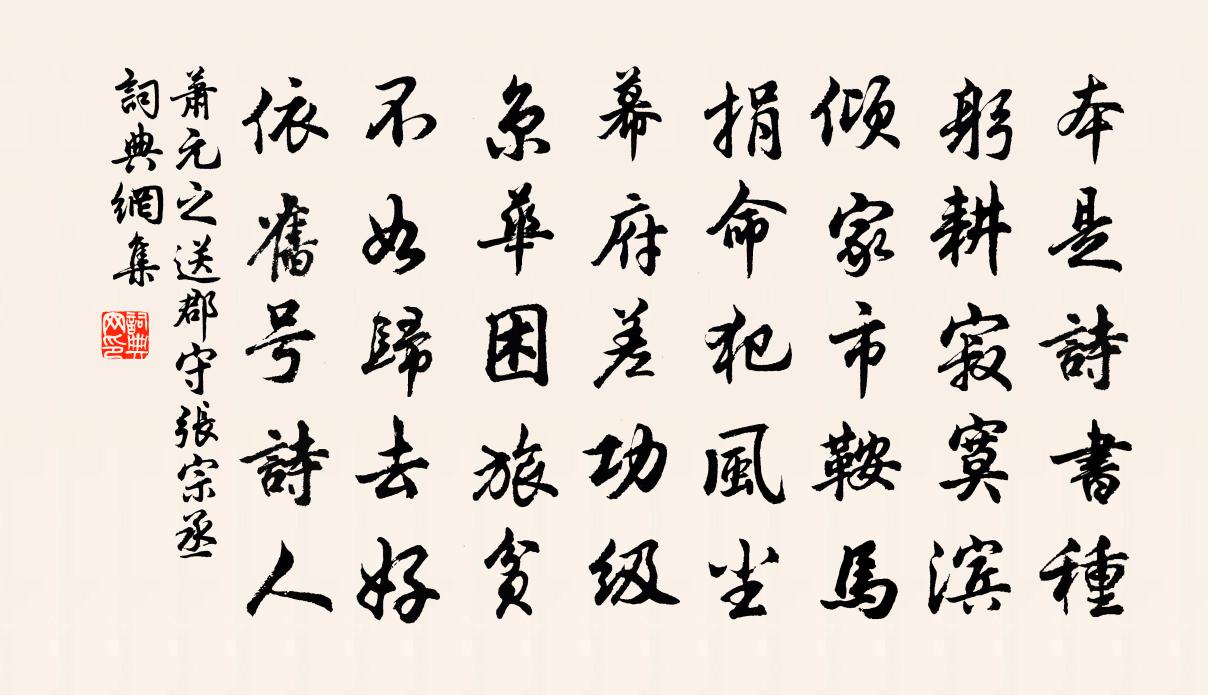 本是詩書種
躬耕寂寞滨
傾家市鞍馬
捐命犯風尘
幕府差功级
京華困旅貧
不如歸去好
依舊号詩人
萧元之送郡守張宗丞
詞典網集
詞典网印